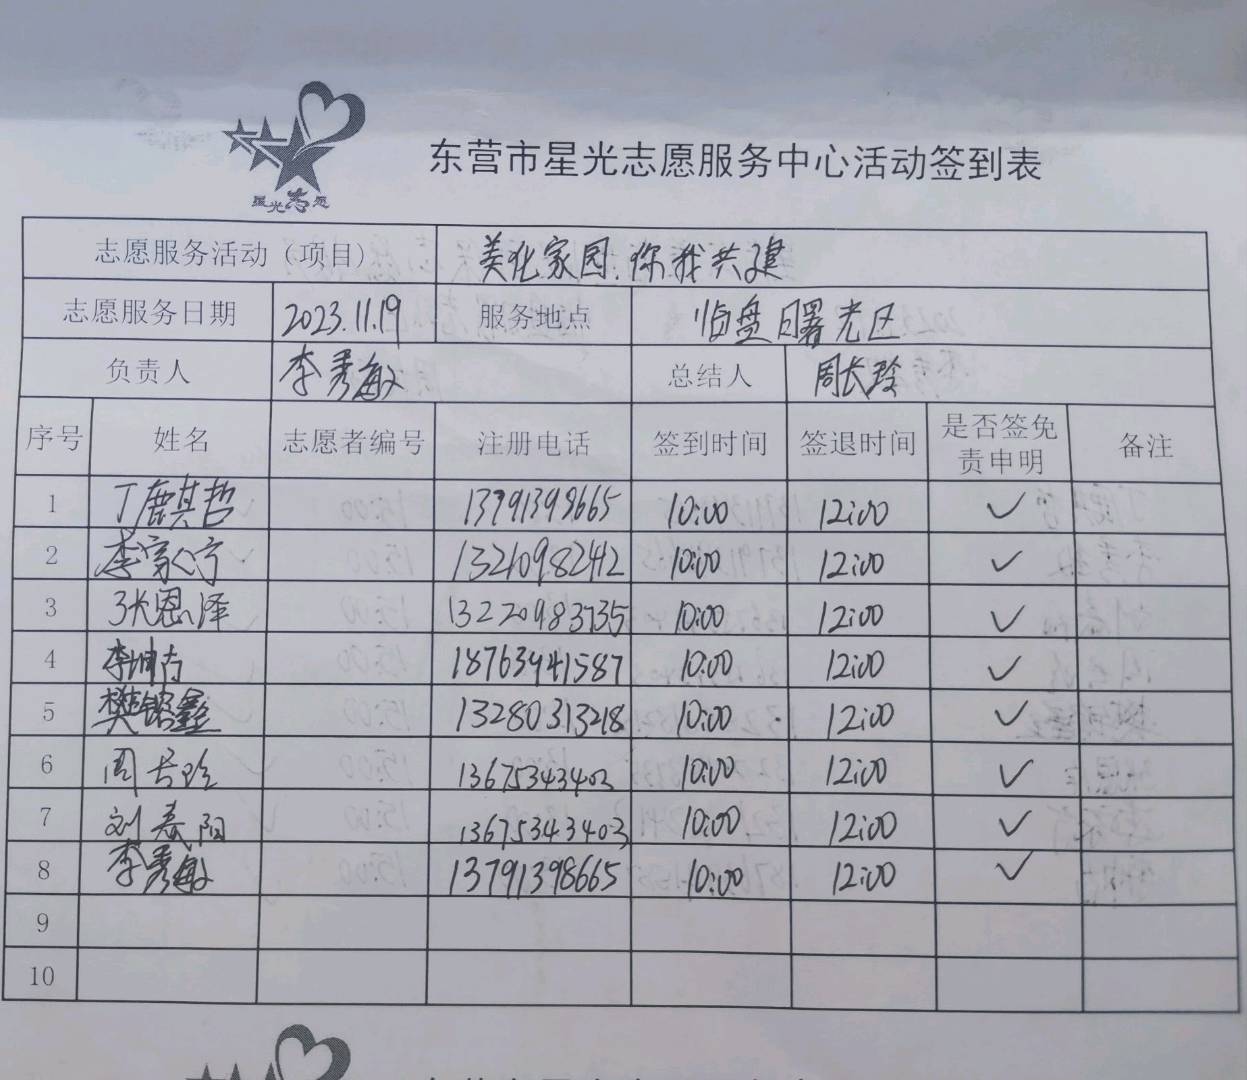 星光志愿
东营市星光志愿服务中心活动签到表
志愿服务活动（项目） 美化家园.你我共建
志愿服务日期 2023.11.19 服务地点 临盘曙光区
负责人 李秀敏 总结人 周长玲
序号 姓名 志愿者编号 注册电话 签到时间 签退时间 是否签免责申明 备注
1 丁鹿其哲 13791398665 10:00 12:00 ✓
2 李家宁 13210982412 10:00 12:00 ✓
3 张恩泽 13220983735 10:00 12:00 ✓
4 李坤 18763441587 10:00 12:00 ✓
5 樊铭鑫 13280313218 10:00 12:00 ✓
6 周长玲 13675343403 10:00 12:00 ✓
7 刘春阳 13675343403 10:00 12:00 ✓
8 李秀敏 13791398665 10:00 12:00 ✓
9
10